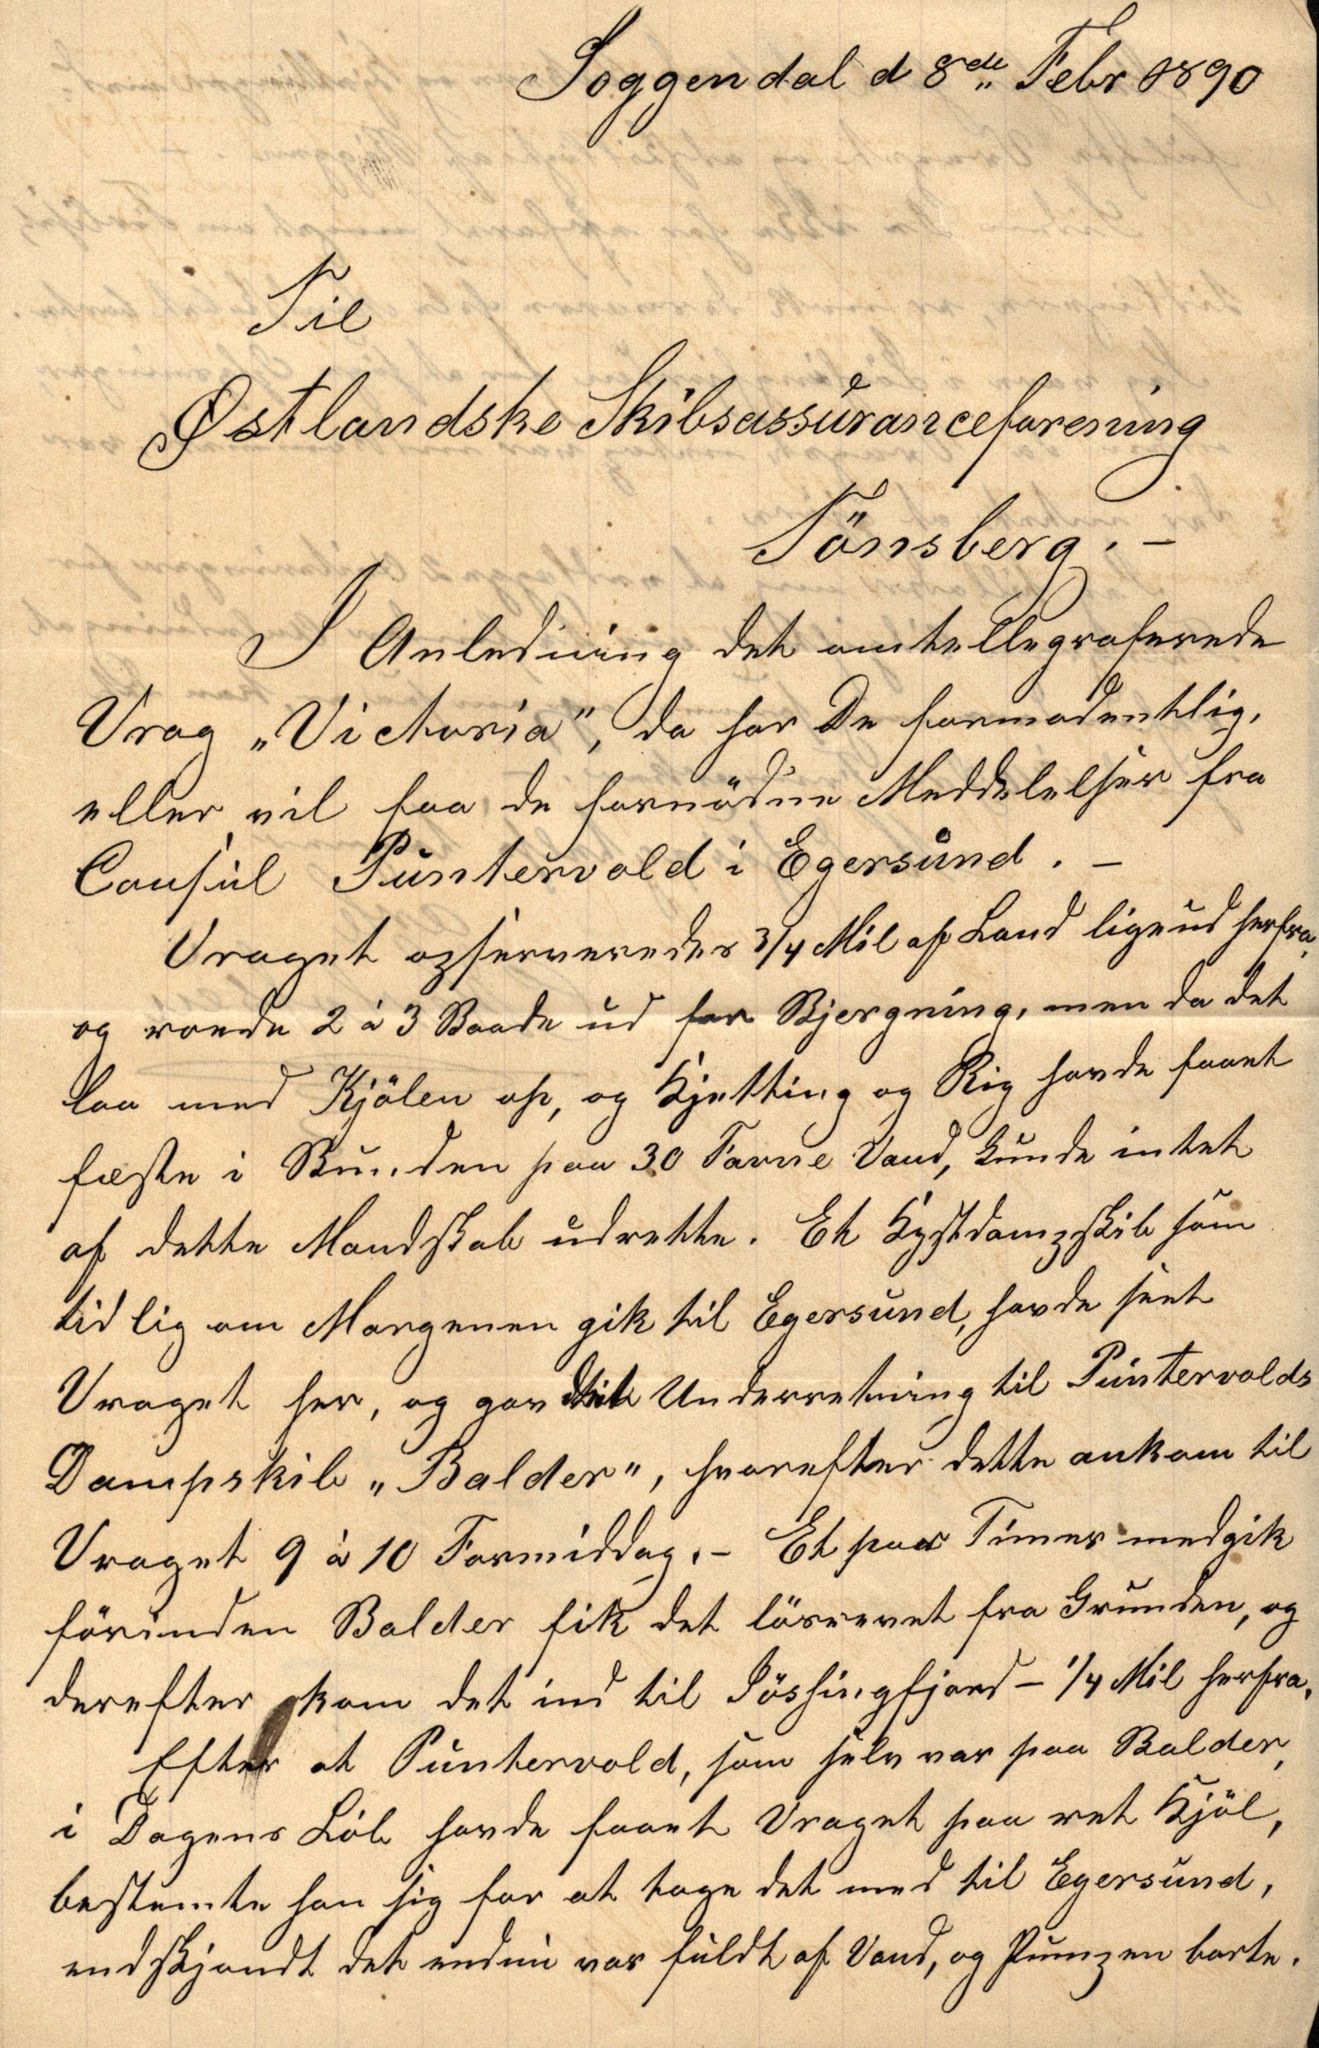 Soggendal d 8de Febr 1890
Til
Østlandske Skibsassuranceforening
Tönsberg. –
I Anledning det omtellegraferede
Vrag „Victoria", da har De formodentlig,
eller vil faa de fornödne Meddelelser fra
Consul Puntervold i Egersund. –
Vraget opserveredes 3/4 Mil af Land ligeud herfra,
og roede 2 à 3 Baade ud for Bjergning, men da det
laa med Kjölen op, og Kjetting og Rig havde faaet
fæste i Bunden paa 30 Favne Vand, kunde intet
af dette Mandskab udrette. Et Kystdampskib som
tidlig om Morgenen gik til Egersund, havde seet
Vraget her, og gav Underretning til Puntervolds
Dampskib „Balder", hvorefter dette ankom til
Vraget 9 à 10 Formiddag. – Et par Timer medgik
förinden Balder fik det lösrevet fra Grunden, og
derefter kom det ind til Jössingfjord – 1/4 Mil herfra.
Efter at Puntervold, som selv var paa Balder,
i Dagens Löb havde faaet Vraget paa ret Kjöl,
bestemte han sig for at tage det med til Egersund,
endskjöndt det endnu var fuldt af Vand, og Pumpen borte.